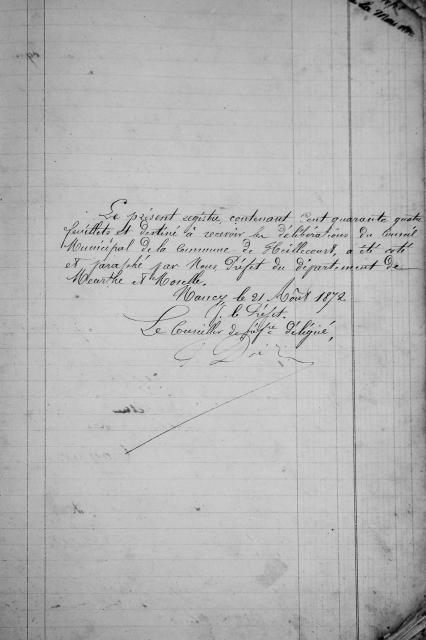 Le présent registre, contenant Cent quarante quatre
feuillets et destiné à recevoir les délibérations du Conseil
Municipal de la Commune de Heillecourt, a été coté
et paraphé par Nous Préfet du département de
Meurthe et Moselle.
Nancy le 21 Août 1872
P. le Préfet.
Le Conseiller de préfre délégué,